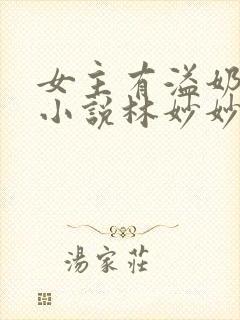 女主有溢奶
小說林妙妙
湯家莊